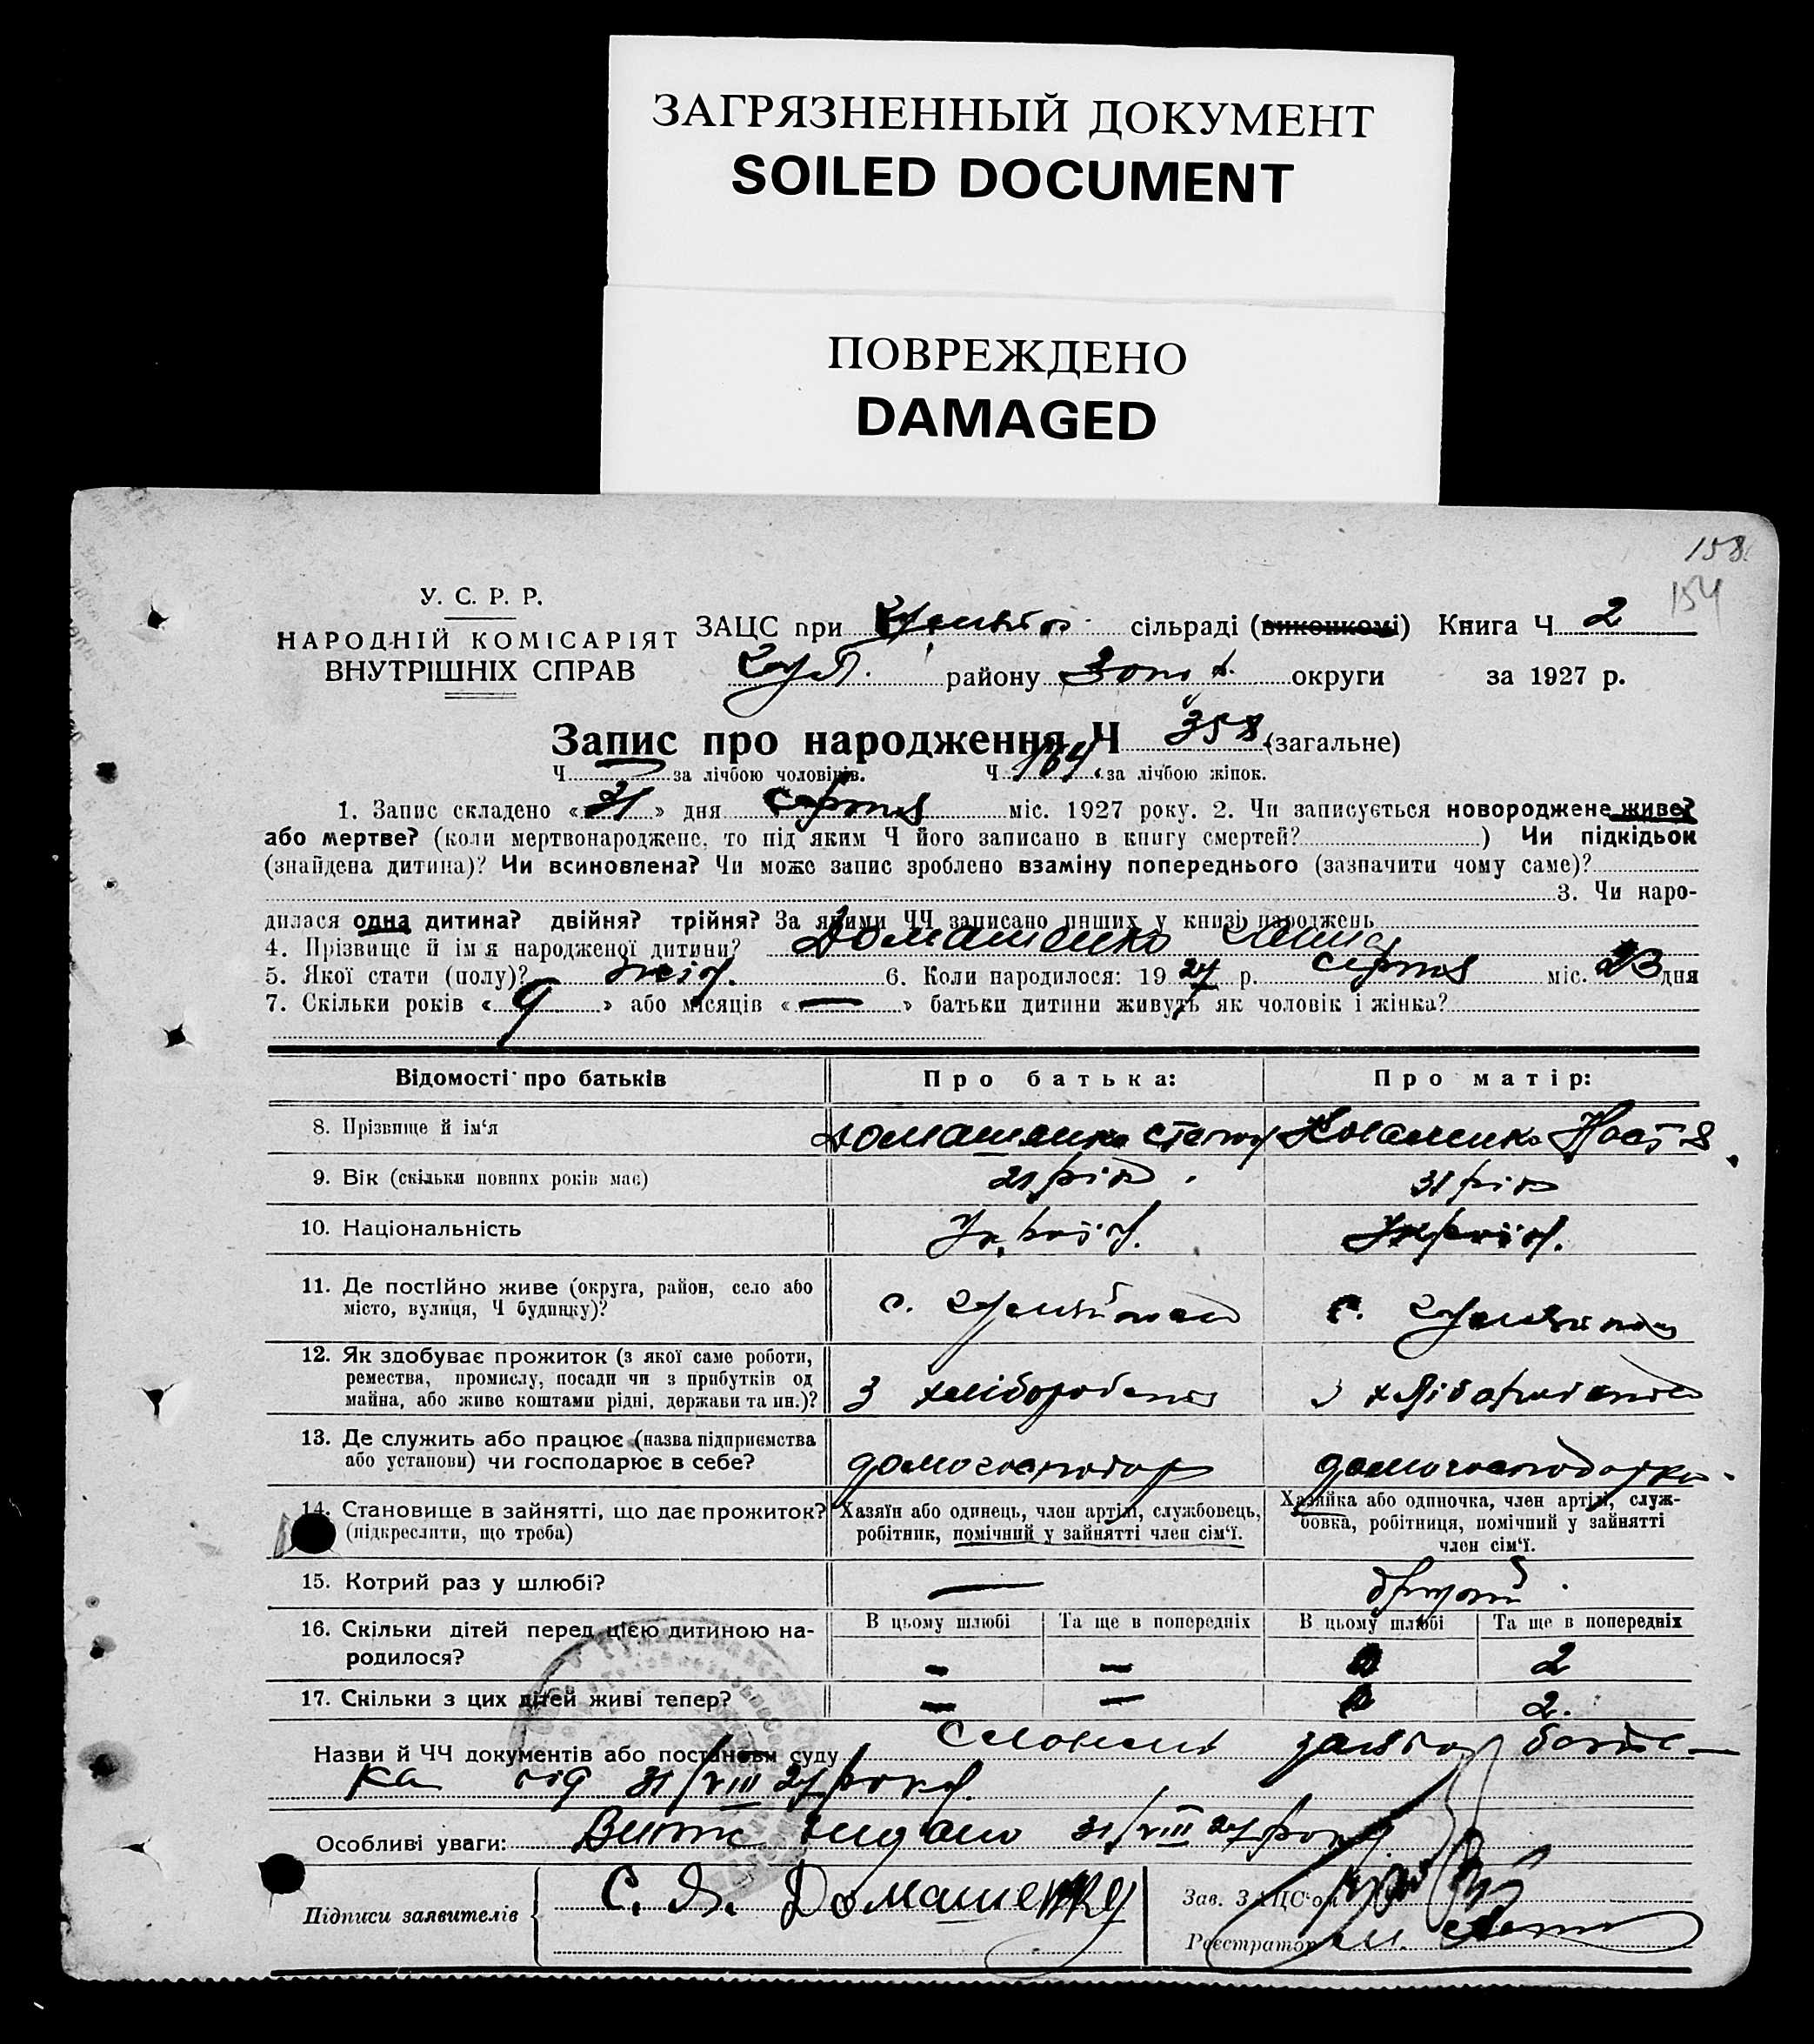 ЗАГРЯЗНЕННЫЙ ДОКУМЕНТ
SOILED DOCUMENT
ПОВРЕЖДЕНО
DAMAGED
158
154
У. С. Р. Р.
НАРОДНІЙ КОМІСАРІЯТ
ВНУТРІШНІХ СПРАВ
ЗАЦС при сільраді (виконкомі) Книга Ч 2
району Зонт округи за 1927 р.
Запис про народження Ч 358 (загальне)
Ч за лічбою чоловіків. Ч 164 за лічбою жінок.
1. Запис складено « 31 » дня серпня міс. 1927 року. 2. Чи записується новороджене живе?
або мертве? (коли мертвонароджене, то під яким Ч його записано в книгу смертей? ) Чи підкідьок
(знайдена дитина)? Чи всиновлена? Чи може запис зроблено взаміну попереднього (зазначити чому саме)?
3. Чи наро-
дилася одна дитина? двійня? трійня? За якими ЧЧ записано инших у книзі народжень
4. Прізвище й ім'я народженої дитини? Домашенко
5. Якої стати (полу)? жін. 6. Коли народилося: 19 27 р. серпня міс. 23 дня
7. Скільки років « 9 » або місяців « — » батьки дитини живуть як чоловік і жінка?
Відомості про батьків Про батька: Про матір:
8. Прізвище й ім'я Домашенко Степан Коваленко Настя
9. Вік (скільки повних років має) 21 рік 31 рік
10. Національність Україн. Україн.
11. Де постійно живе (округа, район, село або
місто, вулиця, Ч будинку)? с. с.
12. Як здобуває прожиток (з якої саме роботи,
ремества, промислу, посади чи з прибутків од
майна, або живе коштами рідні, держави та ин.)? З хліборобства З хліборобства
13. Де служить або працює (назва підприємства
або установи) чи господарює в себе? домогосподар домогосподарка
14. Становище в зайнятті, що дає прожиток?
(підкреслити, що треба)
Хазяїн або одинець, член артілі, службовець,
робітник, помічний у зайнятті член сім'ї.
Хазяйка або одиночка, член артілі, служ-
бовка, робітниця, помічний у зайнятті
член сім'ї.
15. Котрий раз у шлюбі? — другий
16. Скільки дітей перед цією дитиною на-
родилося?
В цьому шлюбі Та ще в попередніх В цьому шлюбі Та ще в попередніх
— — 2
17. Скільки з цих дітей живі тепер? — — 2.
Назви й ЧЧ документів або постанови суду Словесна заява бать-
ка від 31/VIII 27 року
Особливі уваги: Витяг видано 31/VIII 27 року
Підписи заявителів С. Я. Домашенко
Зав. ЗАЦС'ом
Реєстратор